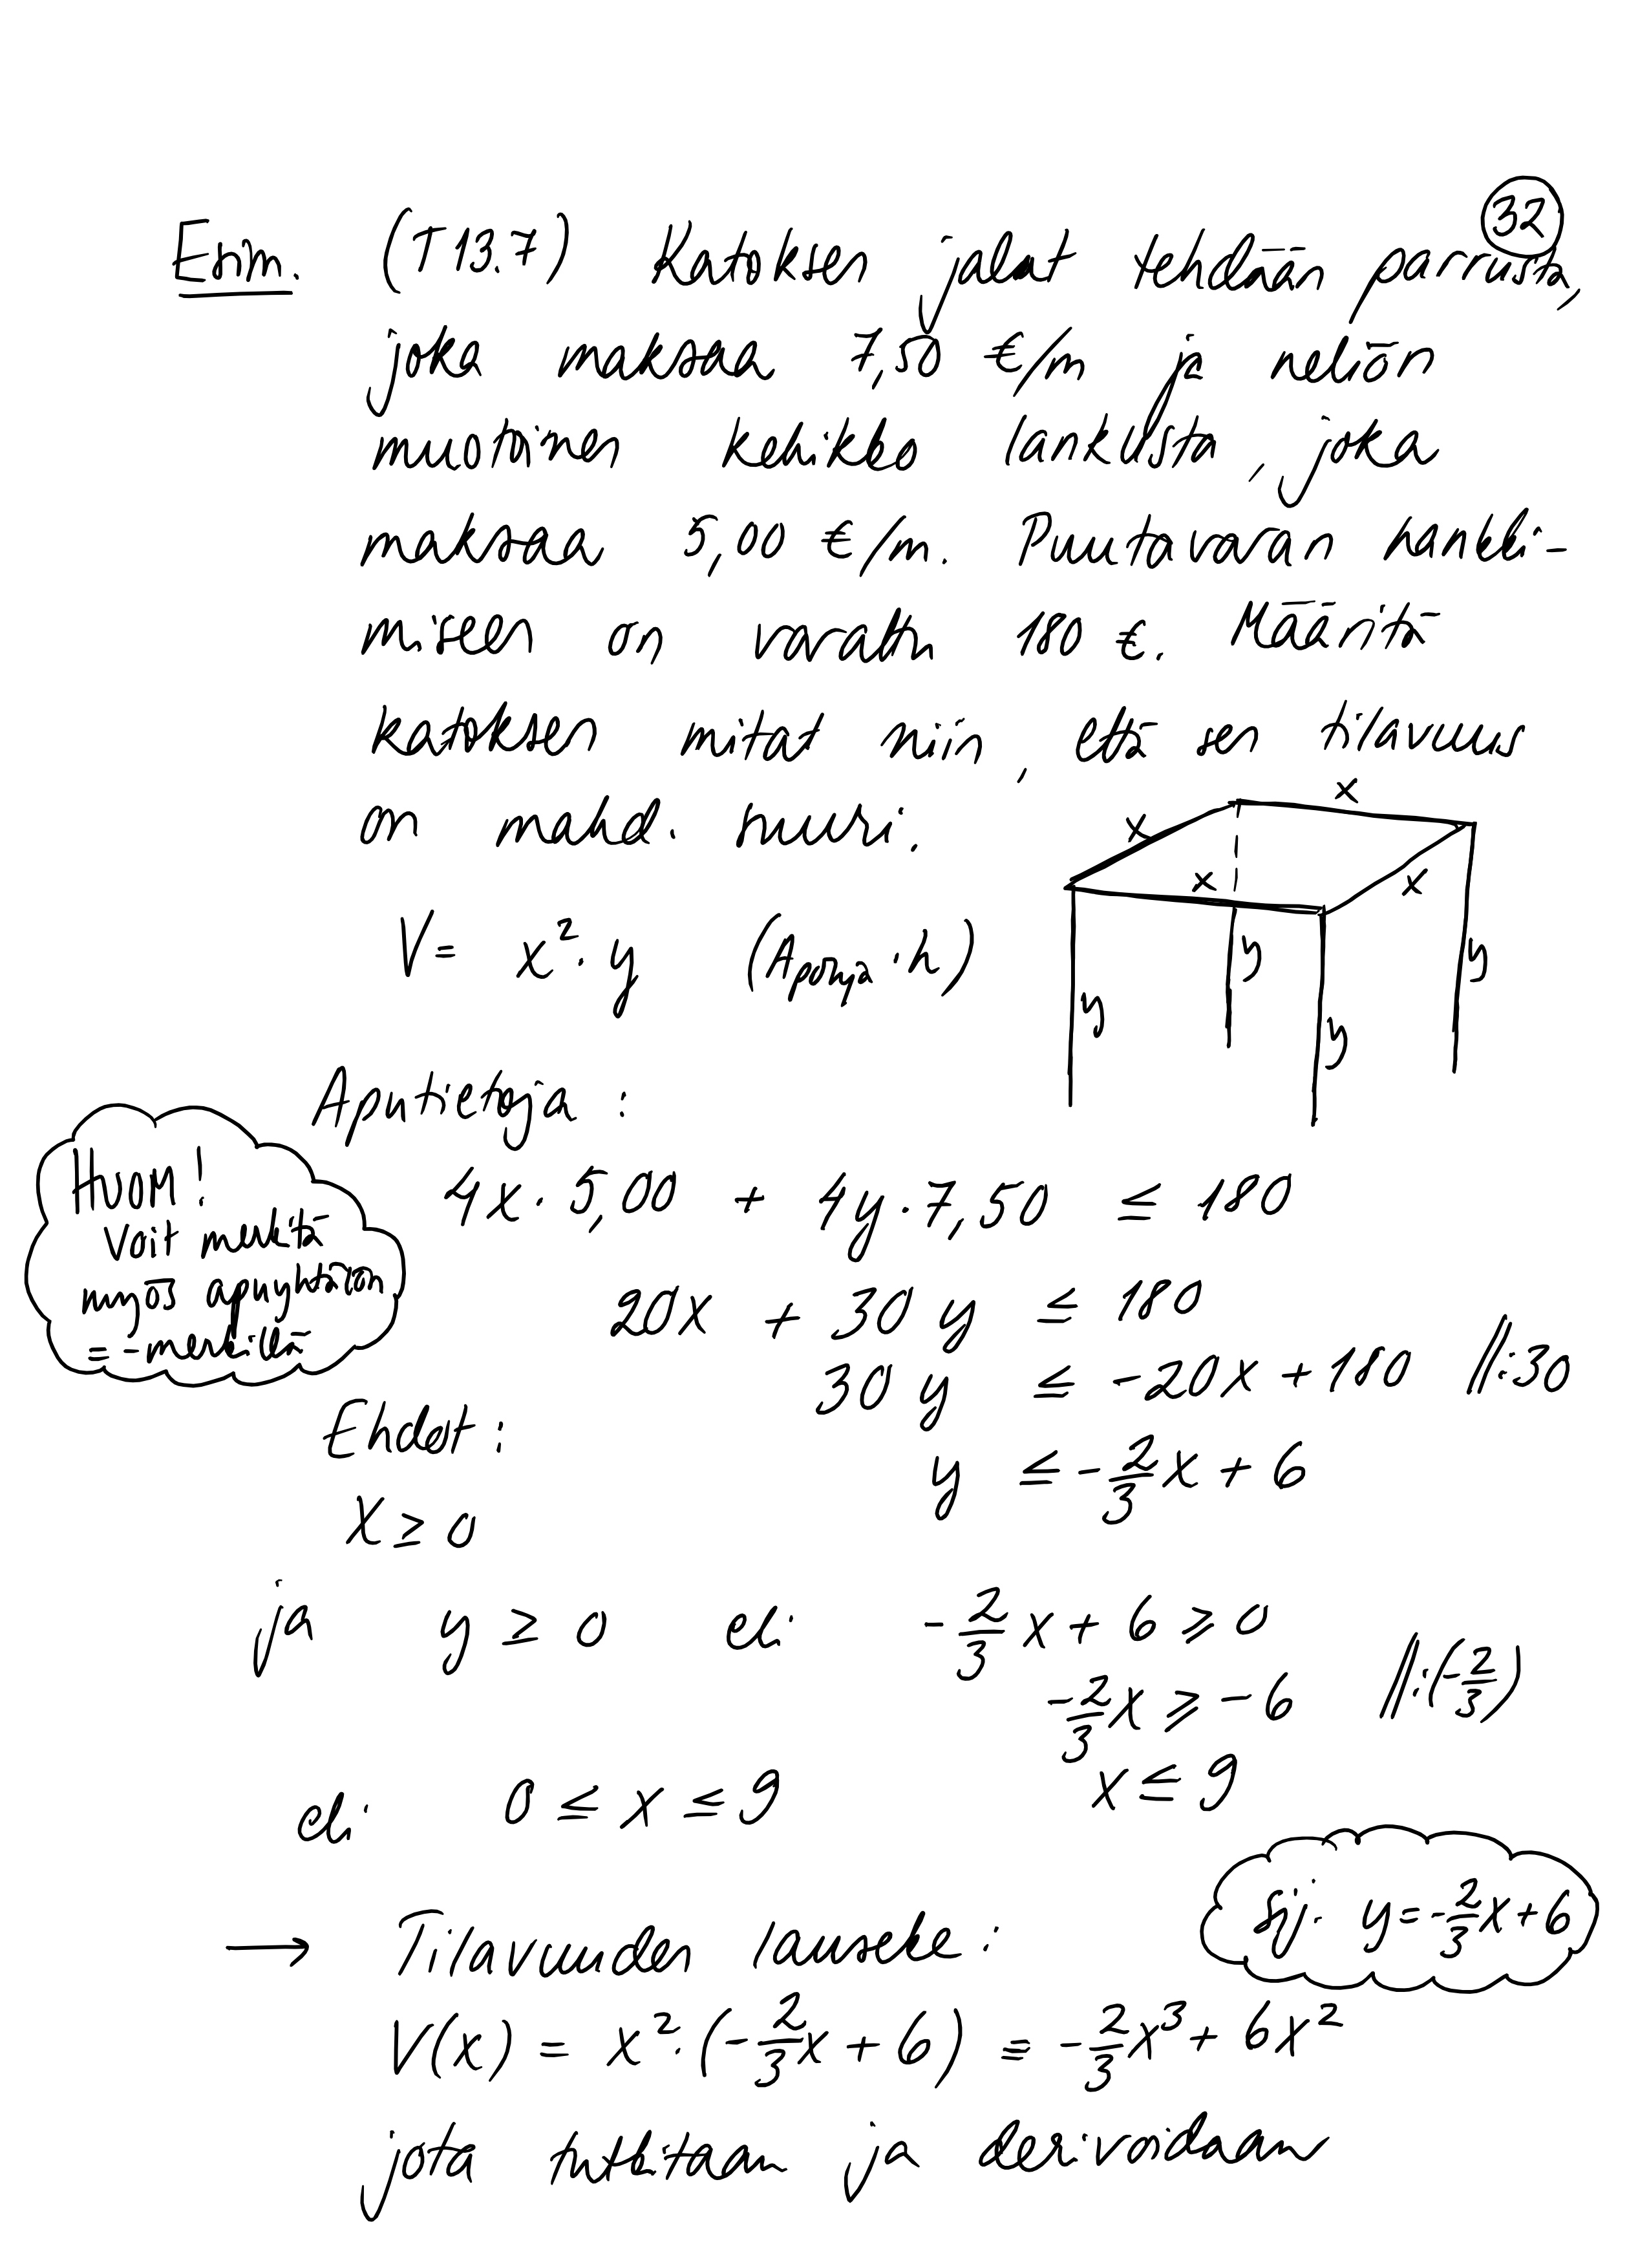 32
Esim. (T13.7) Katoksen jalat tehdään parrusta,
joka maksaa 7,50 €/m ja neliön
muotoinen kehikko lankusta, joka
maksaa 5,00 €/m. Puutavaran hankki-
miseen on varattu 180 €. Määritä
katoksen mitat niin, että sen tilavuus
on mahd. suuri.
x
x
x
x
y
y
y
y
V = x²·y (A_pohja · h)
Aputietoja:
4x · 5,00 + 4y · 7,50 ≤ 180
HUOM!
Voit merkitä
myös apuyhtälön
= -merkillä
20x + 30y ≤ 180
30y ≤ -20x + 180 ||:30
y ≤ -2/3 x + 6
Ehdot:
x ≥ 0
ja y ≥ 0 eli -2/3 x + 6 ≥ 0
-2/3 x ≥ -6 ||:(-2/3)
x ≤ 9
eli 0 ≤ x ≤ 9
sij. y = -2/3 x + 6
→ Tilavuuden lauseke:
V(x) = x² · (-2/3 x + 6) = -2/3 x³ + 6x²
jota tutkitaan ja derivoidaan